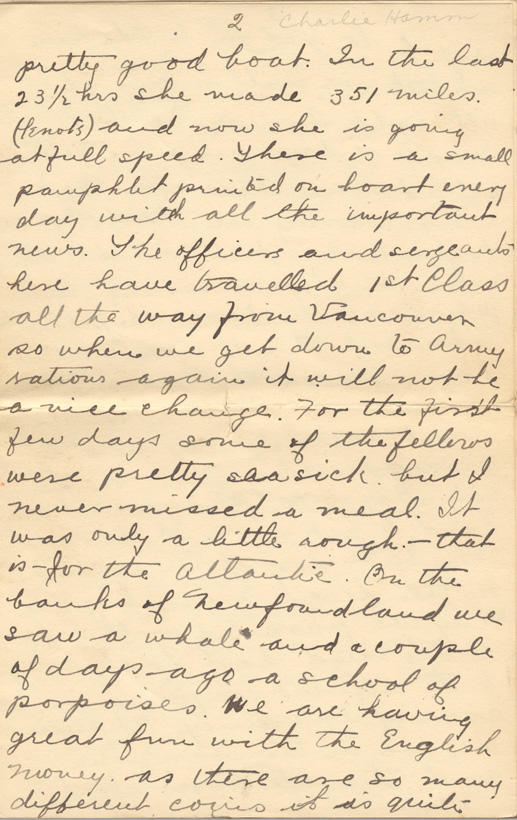 2 Charlie Hamm
pretty good boat. In the last
23½ hrs she made 351 miles.
(knots) and now she is going
at full speed. There is a small
pamphlet printed on boart every
day with all the important
news. The officers and sergeants
here have travelled 1st Class
all the way from Vancouver
so when we get down to Army
rations again it will not be
a nice change. For the first
few days some of the fellows
were pretty seasick. but I
never missed a meal. It
was only a little rough. - that
is - for the Atlantic. On the
banks of Newfoundland we
saw a whale and a couple
of days ago a school of
porpoises. We are having
great fun with the English
money. as there are so many
different coins it is quite